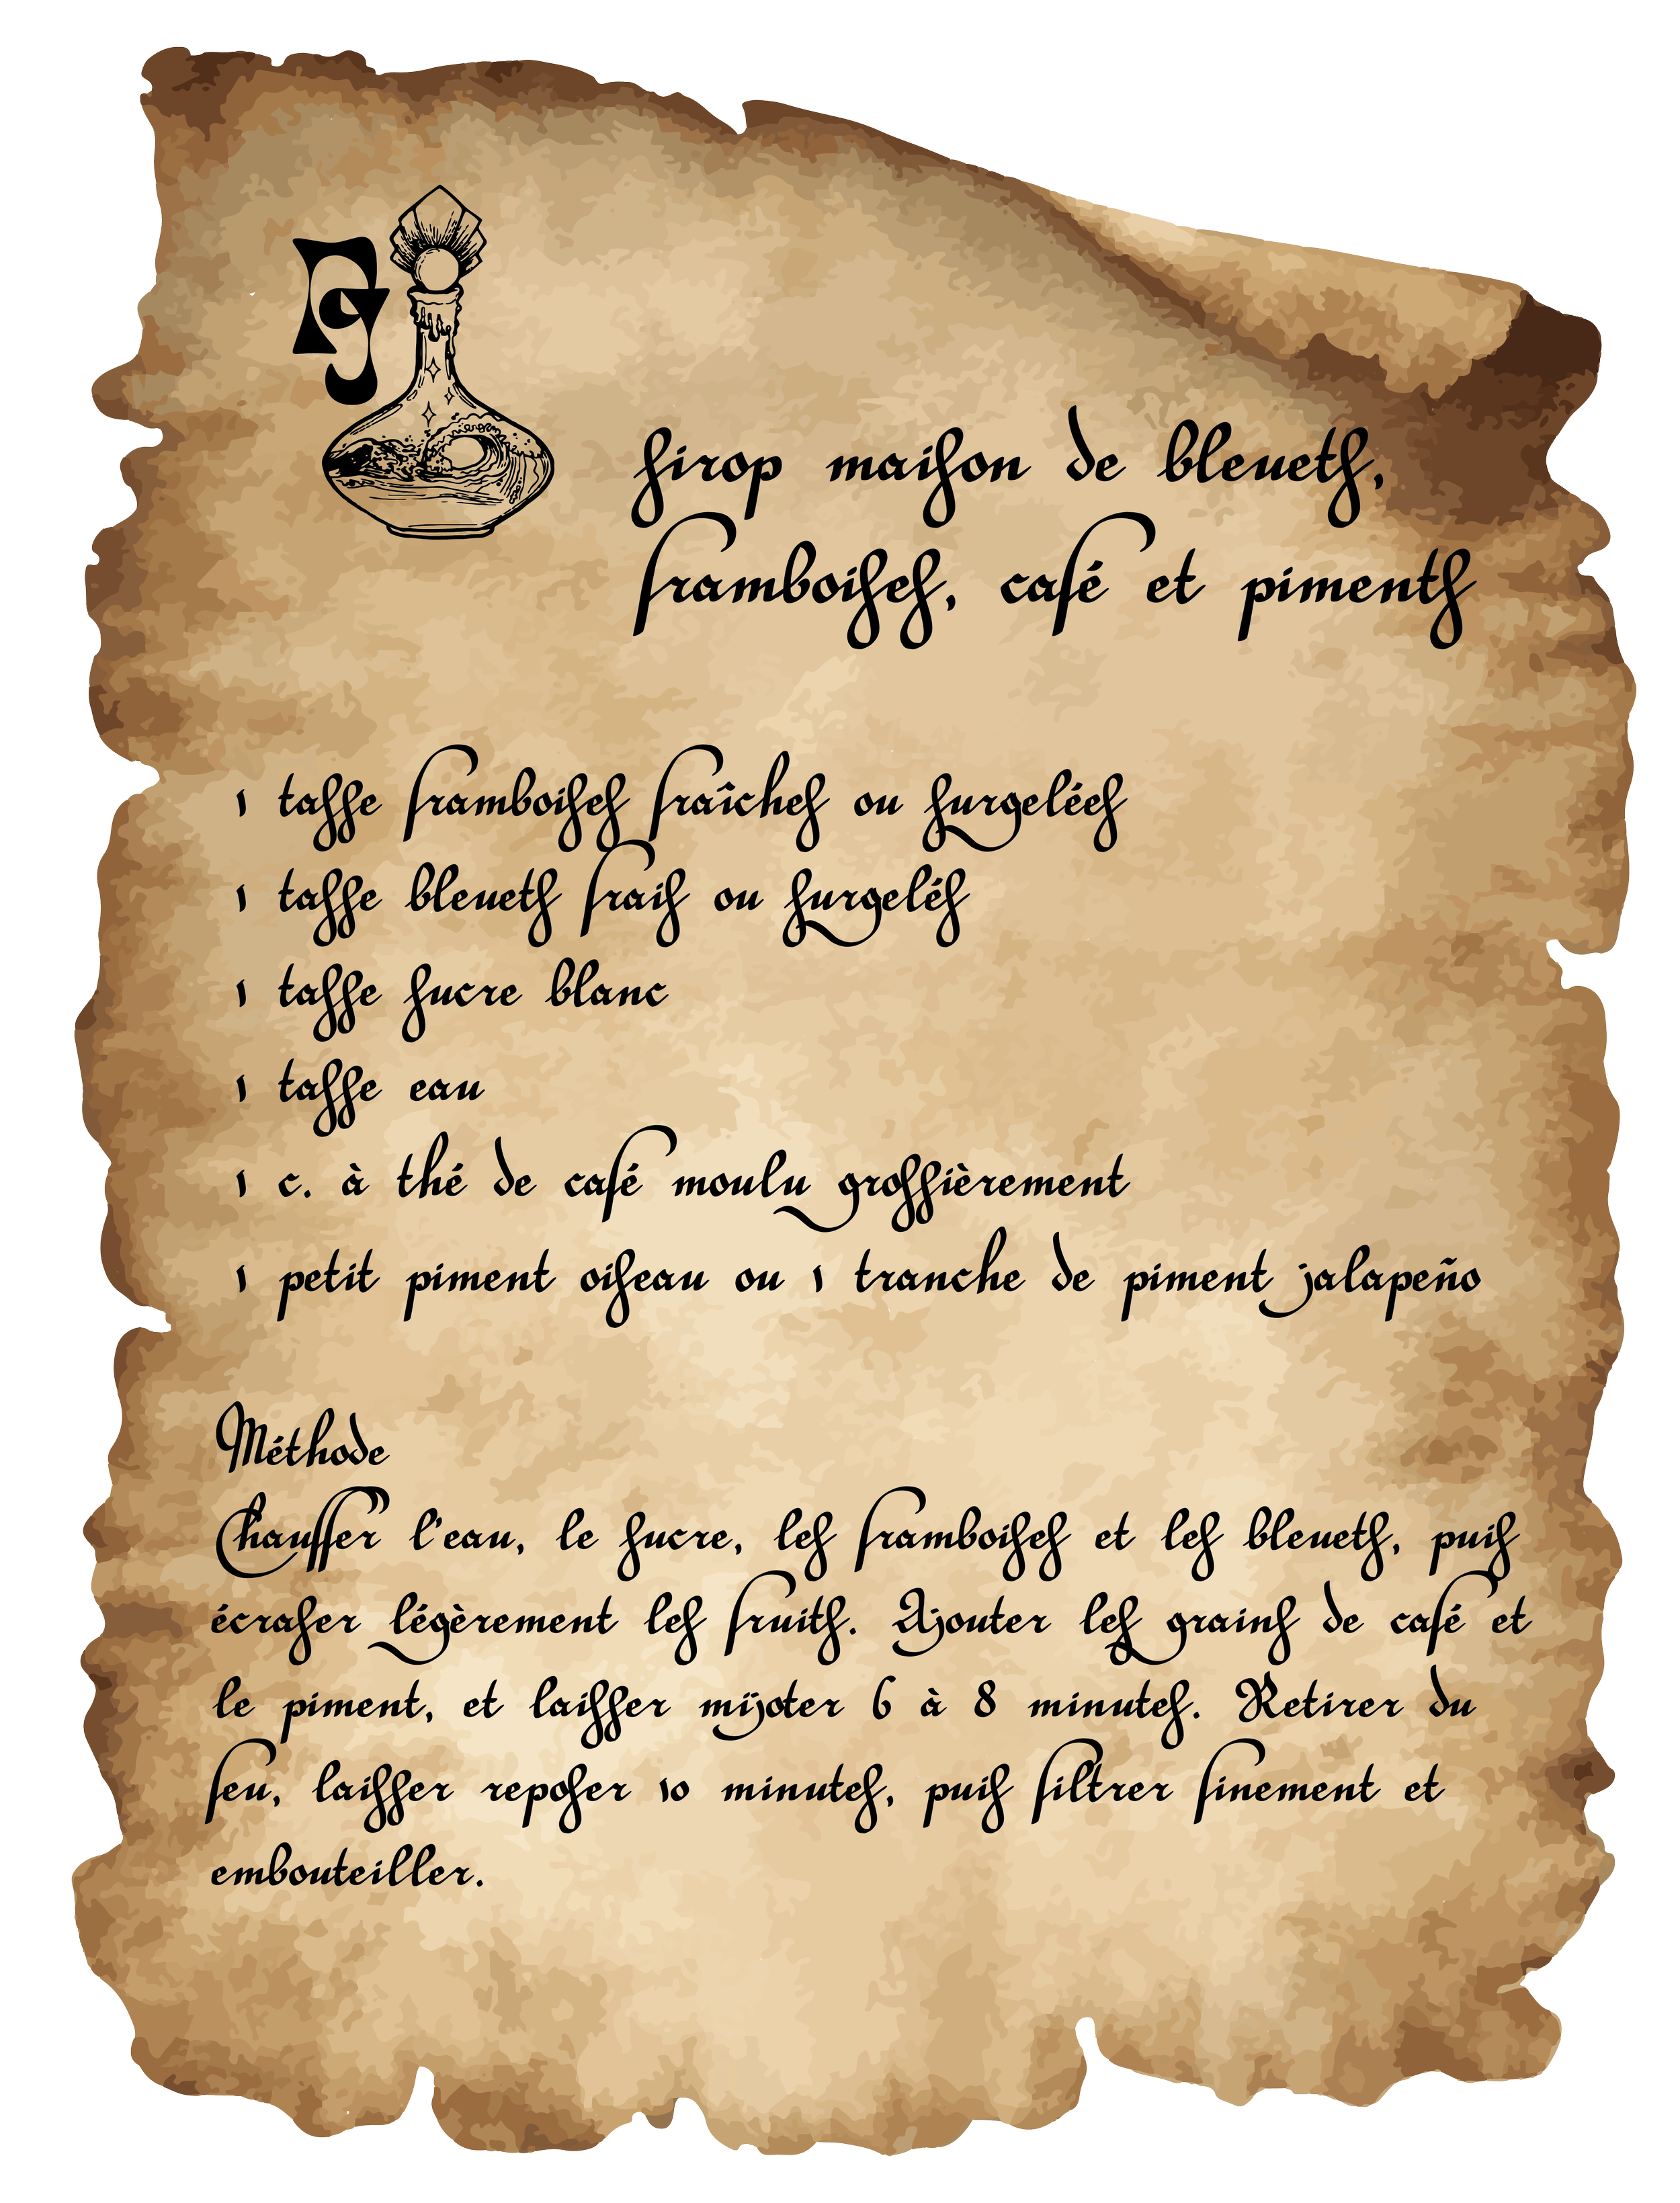 sirop maison de bleuets,
framboises, café et piments
1 tasse framboises fraîches ou surgelées
1 tasse bleuets frais ou surgelés
1 tasse sucre blanc
1 tasse eau
1 c. à thé de café moulu grossièrement
1 petit piment oiseau ou 1 tranche de piment jalapeño
Méthode
Chauffer l'eau, le sucre, les framboises et les bleuets, puis
écraser légèrement les fruits. Ajouter les grains de café et
le piment, et laisser mijoter 6 à 8 minutes. Retirer du
feu, laisser reposer 10 minutes, puis filtrer finement et
embouteiller.